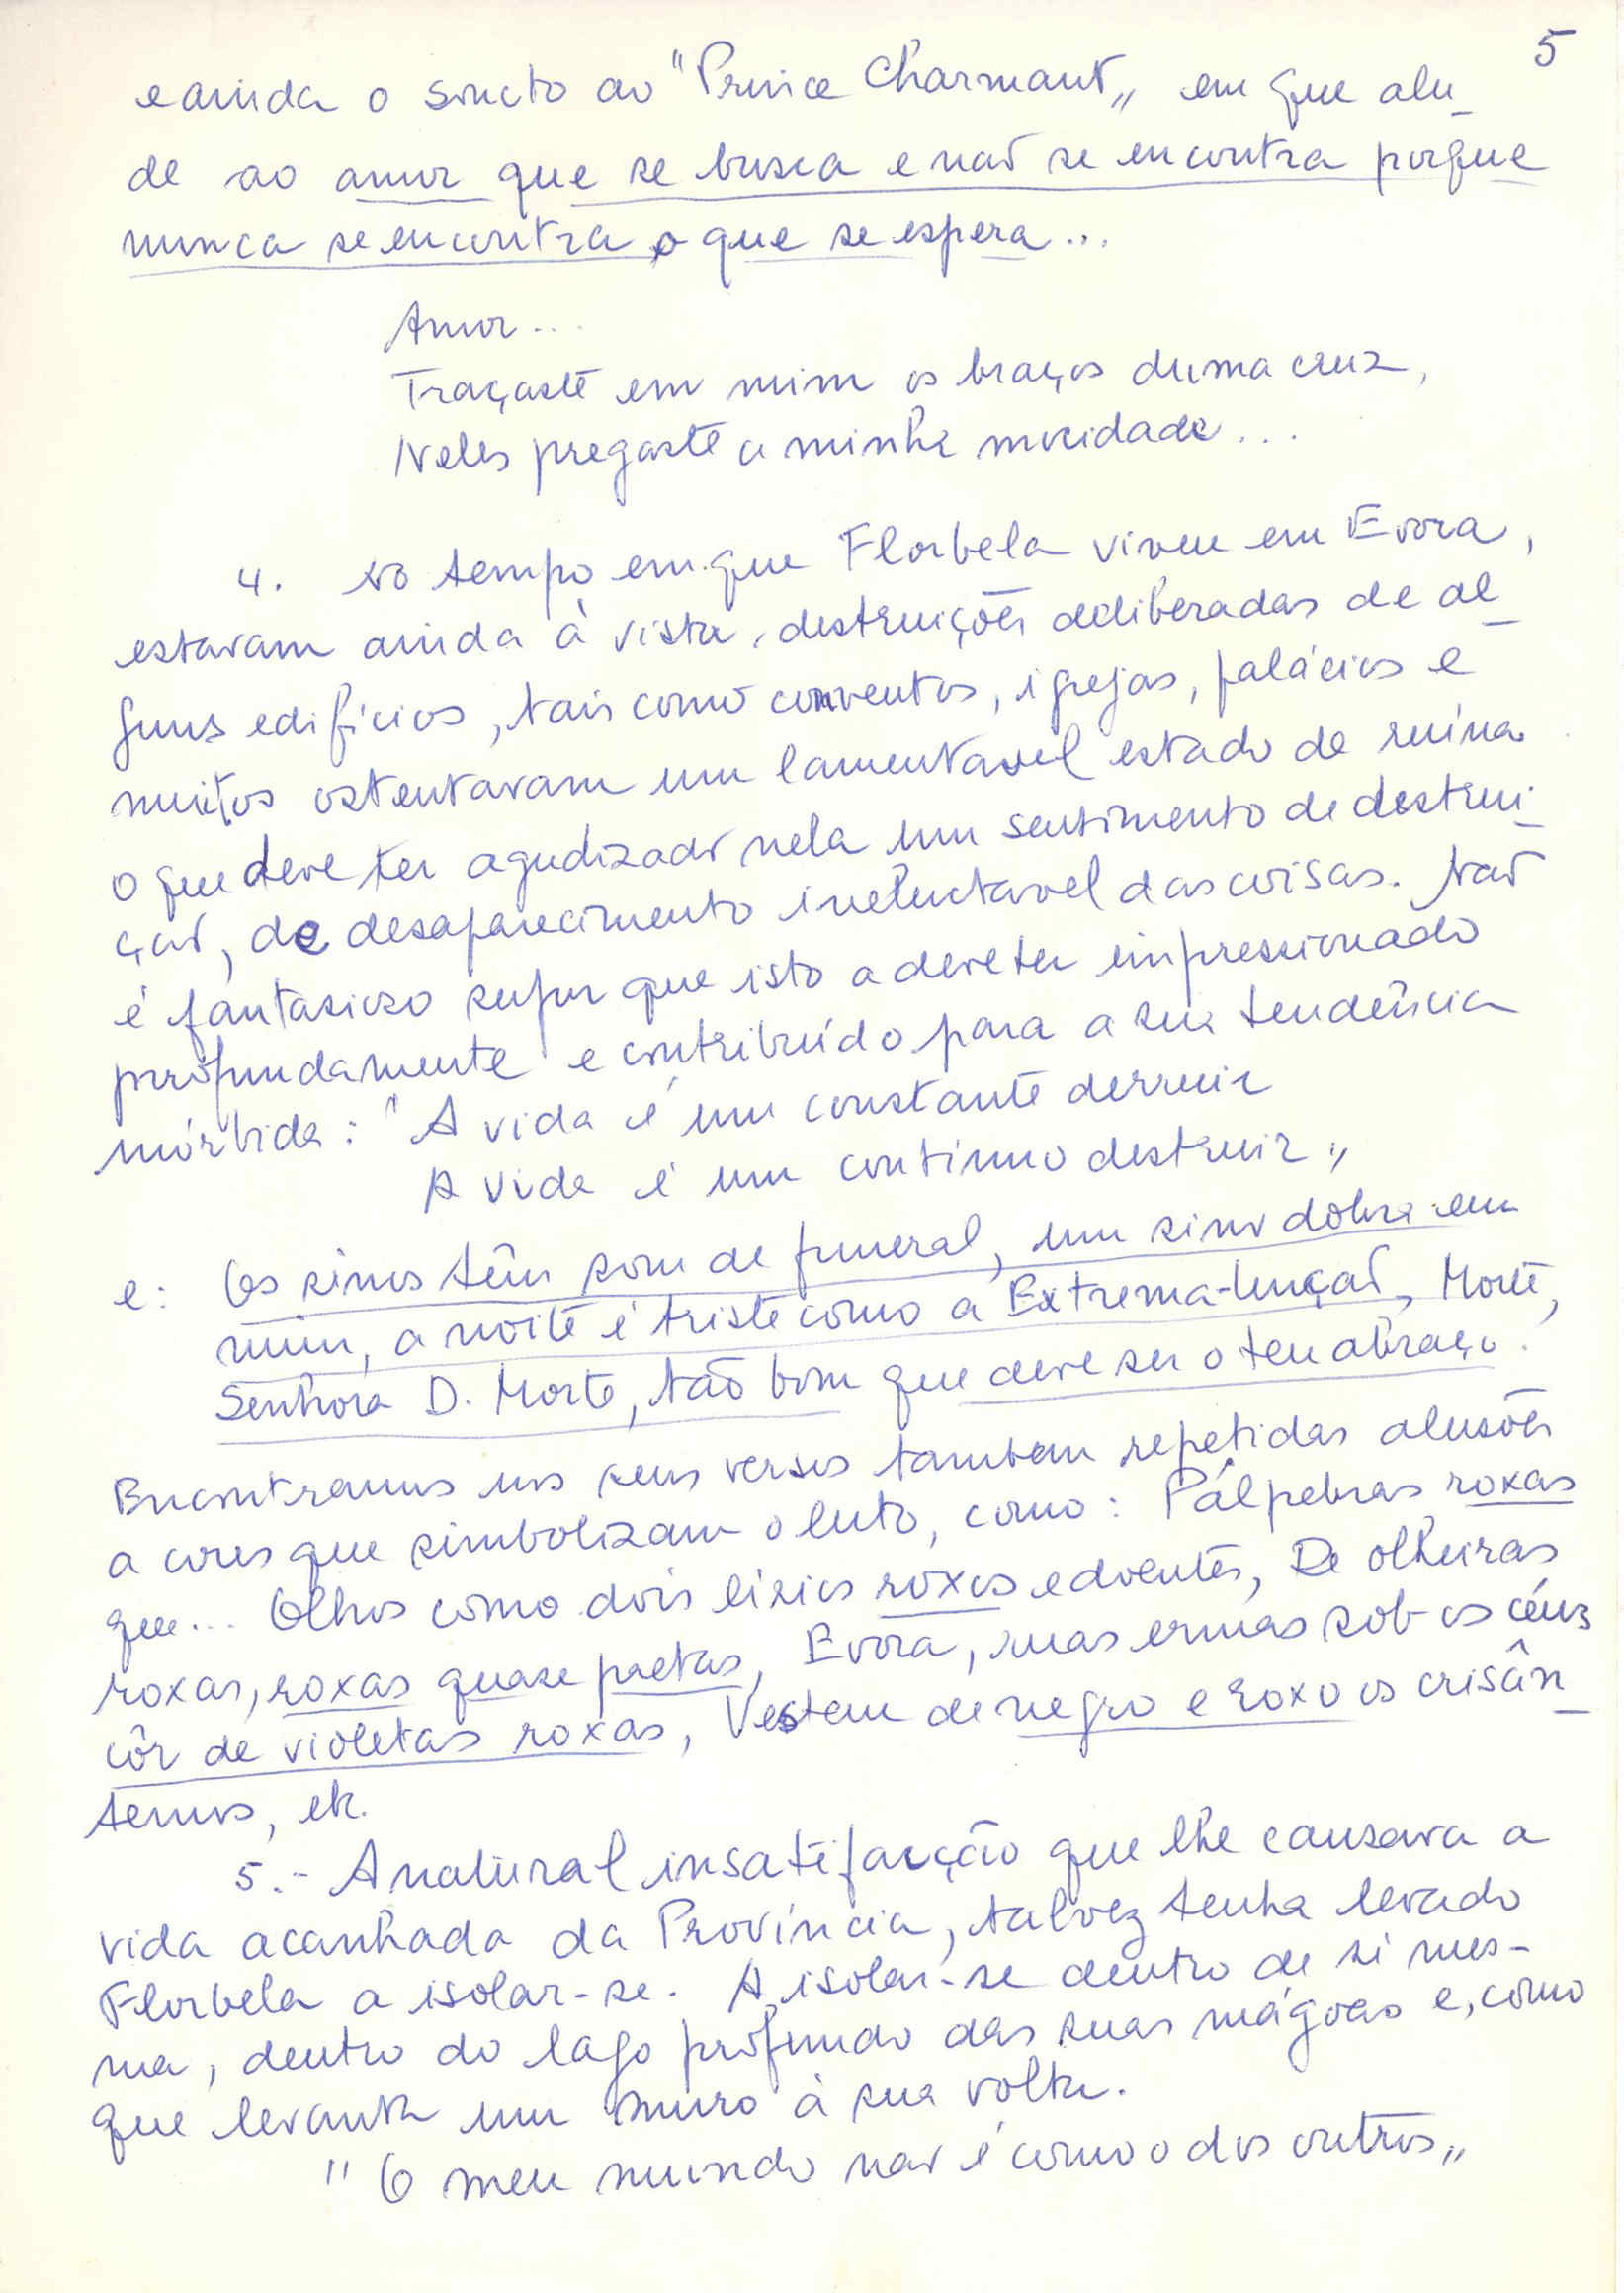 5
e ainda o soneto ao "Prince Charmant„ em que alu-
de ao amor que se busca e não se encontra porque
nunca se encontra o que se espera...
Amor...
Traçaste em mim os braços duma cruz,
Neles pregaste a minha mocidade...
4. No tempo em que Florbela viveu em Evora,
estavam ainda à vista, destruições deliberadas de al-
guns edifícios, tais como conventos, igrejas, palácios e
muitos ostentavam um lamentavel estado de ruina
o que deve ter agudizado nela um sentimento de destrui-
ção, de desaparecimento ineluctavel das coisas. Não
é fantasioso supor que isto a deve ter impressionado
profundamente e contribuído para a sua tendência
mórbida: "A vida é um constante derruir
A vida é um contínuo destruir„
e: Os sinos têm som de funeral, um sino dobra em
mim, a noite é triste como a Extrema-Unção, Morte,
Senhora D. Morte, tão bom que deve ser o teu abraço.
Encontramos nos seus versos tambem repetidas alusões
a cores que simbolizam o luto, como: Pálpebras roxas
que... Olhos como dois lírios roxos e doentes, De olheiras
roxas, roxas quase pretas, Evora, ruas ermas sob os céus
côr de violetas roxas, Vestem de negro e roxo os crisân-
temos, etc.
5.- A natural insatisfacção que lhe causava a
vida acanhada da Província, talvez tenha levado
Florbela a isolar-se. A isolar-se dentro de si mes-
ma, dentro do lago profundo das suas mágoas e, como
que levanta um muro à sua volta.
"O meu mundo não é como o dos outros„